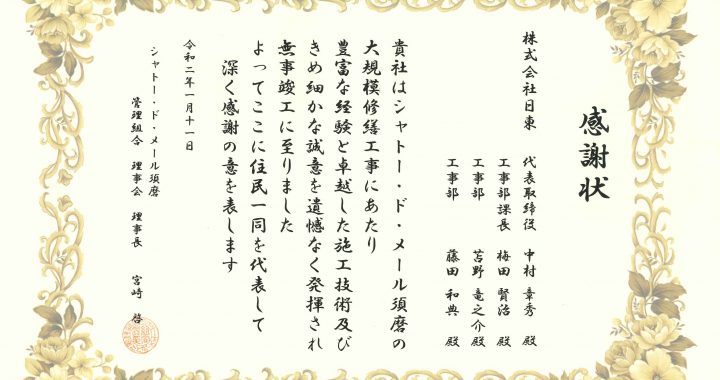 感謝状
株式会社日東 代表取締役 中村 章秀 殿
工事部課長 梅田 賢治 殿
工事部 苫野 竜之介 殿
工事部 藤田 和典 殿
貴社はシャトー・ド・メール須磨の
大規模修繕工事にあたり
豊富な経験と卓越した施工技術及び
きめ細かな誠意を遺憾なく発揮され
無事竣工に至りました
よってここに住民一同を代表して
深く感謝の意を表します
令和二年一月十一日
シャトー・ド・メール須磨
管理組合 理事会 理事長 宮崎 啓